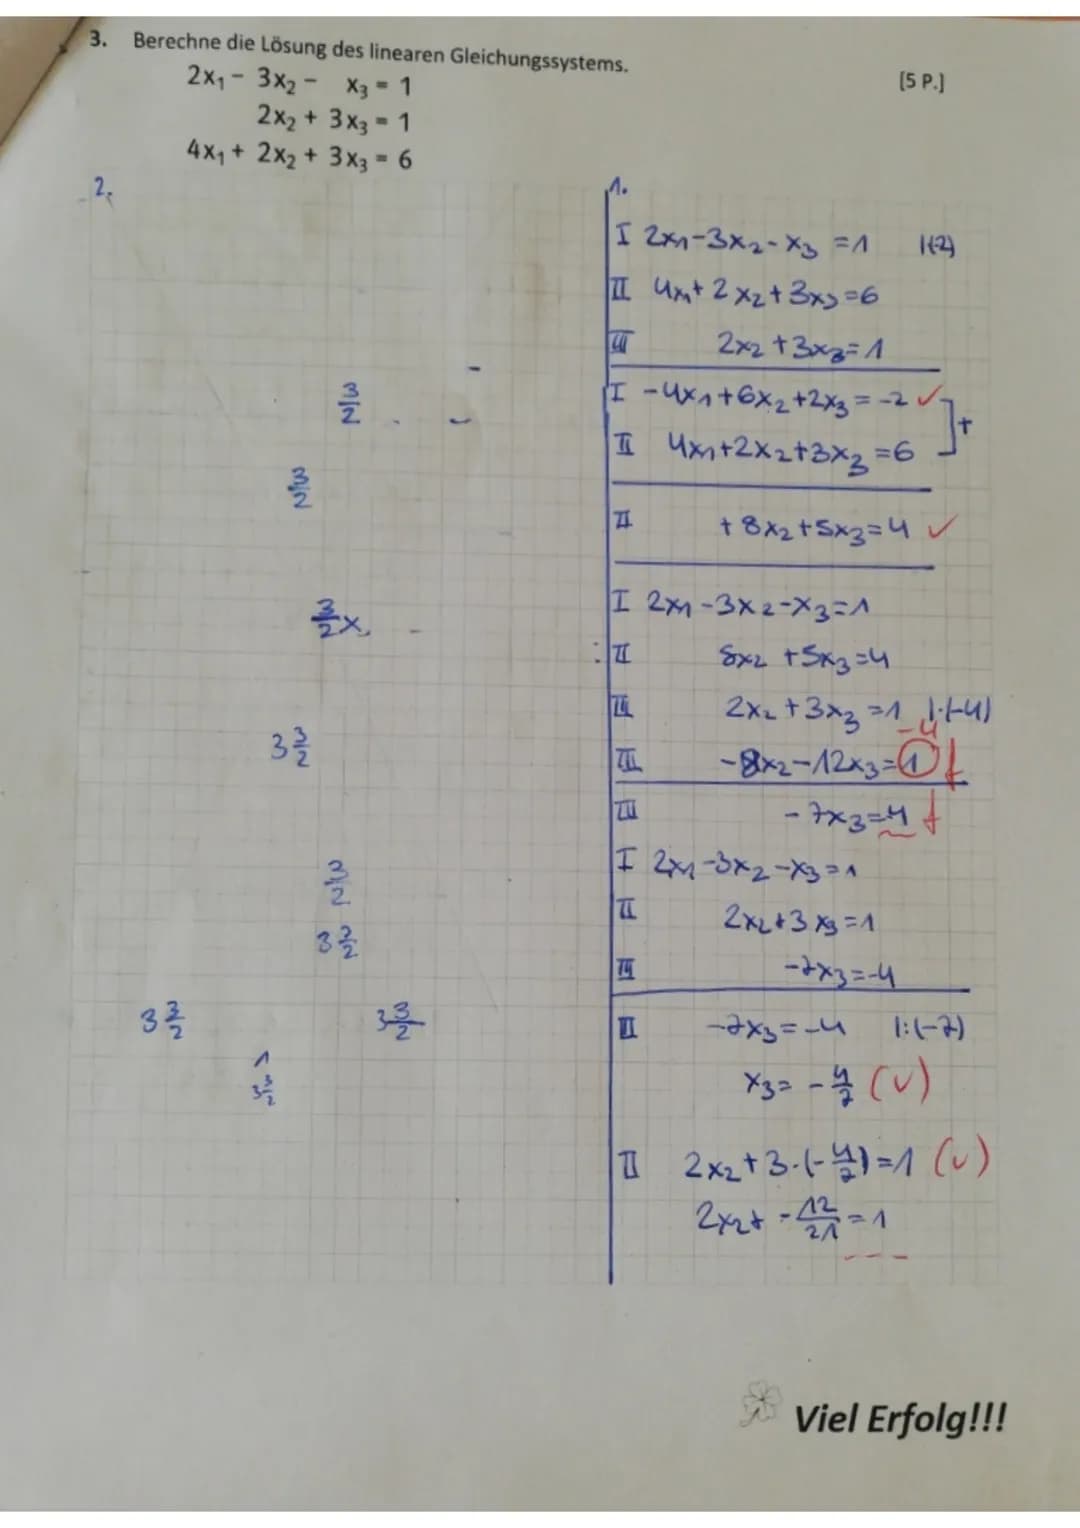 3. Berechne die Lösung des linearen Gleichungssystems.
[5 P.]
2x₁ - 3x₂ - x₃ = 1
2x₂ + 3x₃ = 1
4x₁ + 2x₂ + 3x₃ = 6
2.
3/2
3/2
3/2 x
3 3/2
3/2
3 3/2
3 3/2
3 3/2
1
3 3/2
1.
I 2x₁-3x₂-x₃ =1 |(-2)
II 4x₁+2x₂+3x₃=6
III 2x₂+3x₃=1
I -4x₁+6x₂+2x₃=-2 ✓ ]+
II 4x₁+2x₂+3x₃=6
II +8x₂+5x₃=4 ✓
I 2x₁-3x₂-x₃=1
:II 8x₂+5x₃=4
III 2x₂+3x₃=1 |·(-4)
-4
III -8x₂-12x₃=1 f
III -7x₃=4 f
I 2x₁-3x₂-x₃=1
II 2x₂+3x₃=1
III -7x₃=-4
III -7x₃=-4 |:(-7)
x₃=-4/7 (✓)
II 2x₂+3·(-4/7)=1 (✓)
2x₂+ -12/21=1
Viel Erfolg!!!